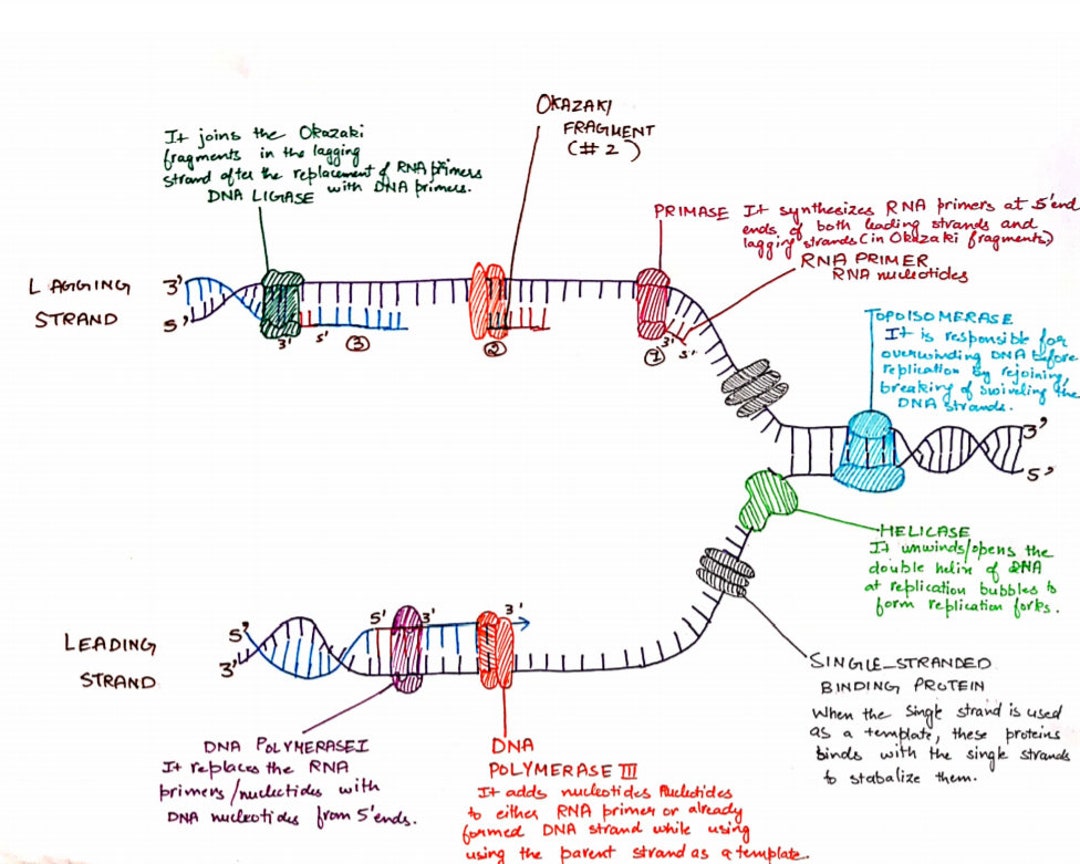 OKAZAKI
FRAGMENT
(# 2)
It joins the Okazaki
fragments in the lagging
strand after the replacement of RNA primers
with DNA primers.
DNA LIGASE
PRIMASE It synthesizes RNA primers at 5' end
ends of both leading strands and
lagging strands (in Okazaki fragments)
RNA PRIMER
RNA nucleotides
LAGGING
STRAND
3'
5'
3'
5'
3
2
1
3'
5'
TOPOISOMERASE
It is responsible for
overwinding DNA before
replication by rejoining,
breaking of swiveling the
DNA strands.
3'
5'
HELICASE
It unwinds/opens the
double helix of DNA
at replication bubbles to
form replication forks.
LEADING
STRAND
5'
3'
5'
3'
3'
SINGLE-STRANDED
BINDING PROTEIN
When the single strand is used
as a template, these proteins
binds with the single strands
to stabalize them.
DNA POLYMERASE I
It replaces the RNA
primers/nucletides with
DNA nucleotides from 5' ends.
DNA
POLYMERASE III
It adds nucleotides Nucletides
to either RNA primer or already
formed DNA strand while using
using the parent strand as a template.